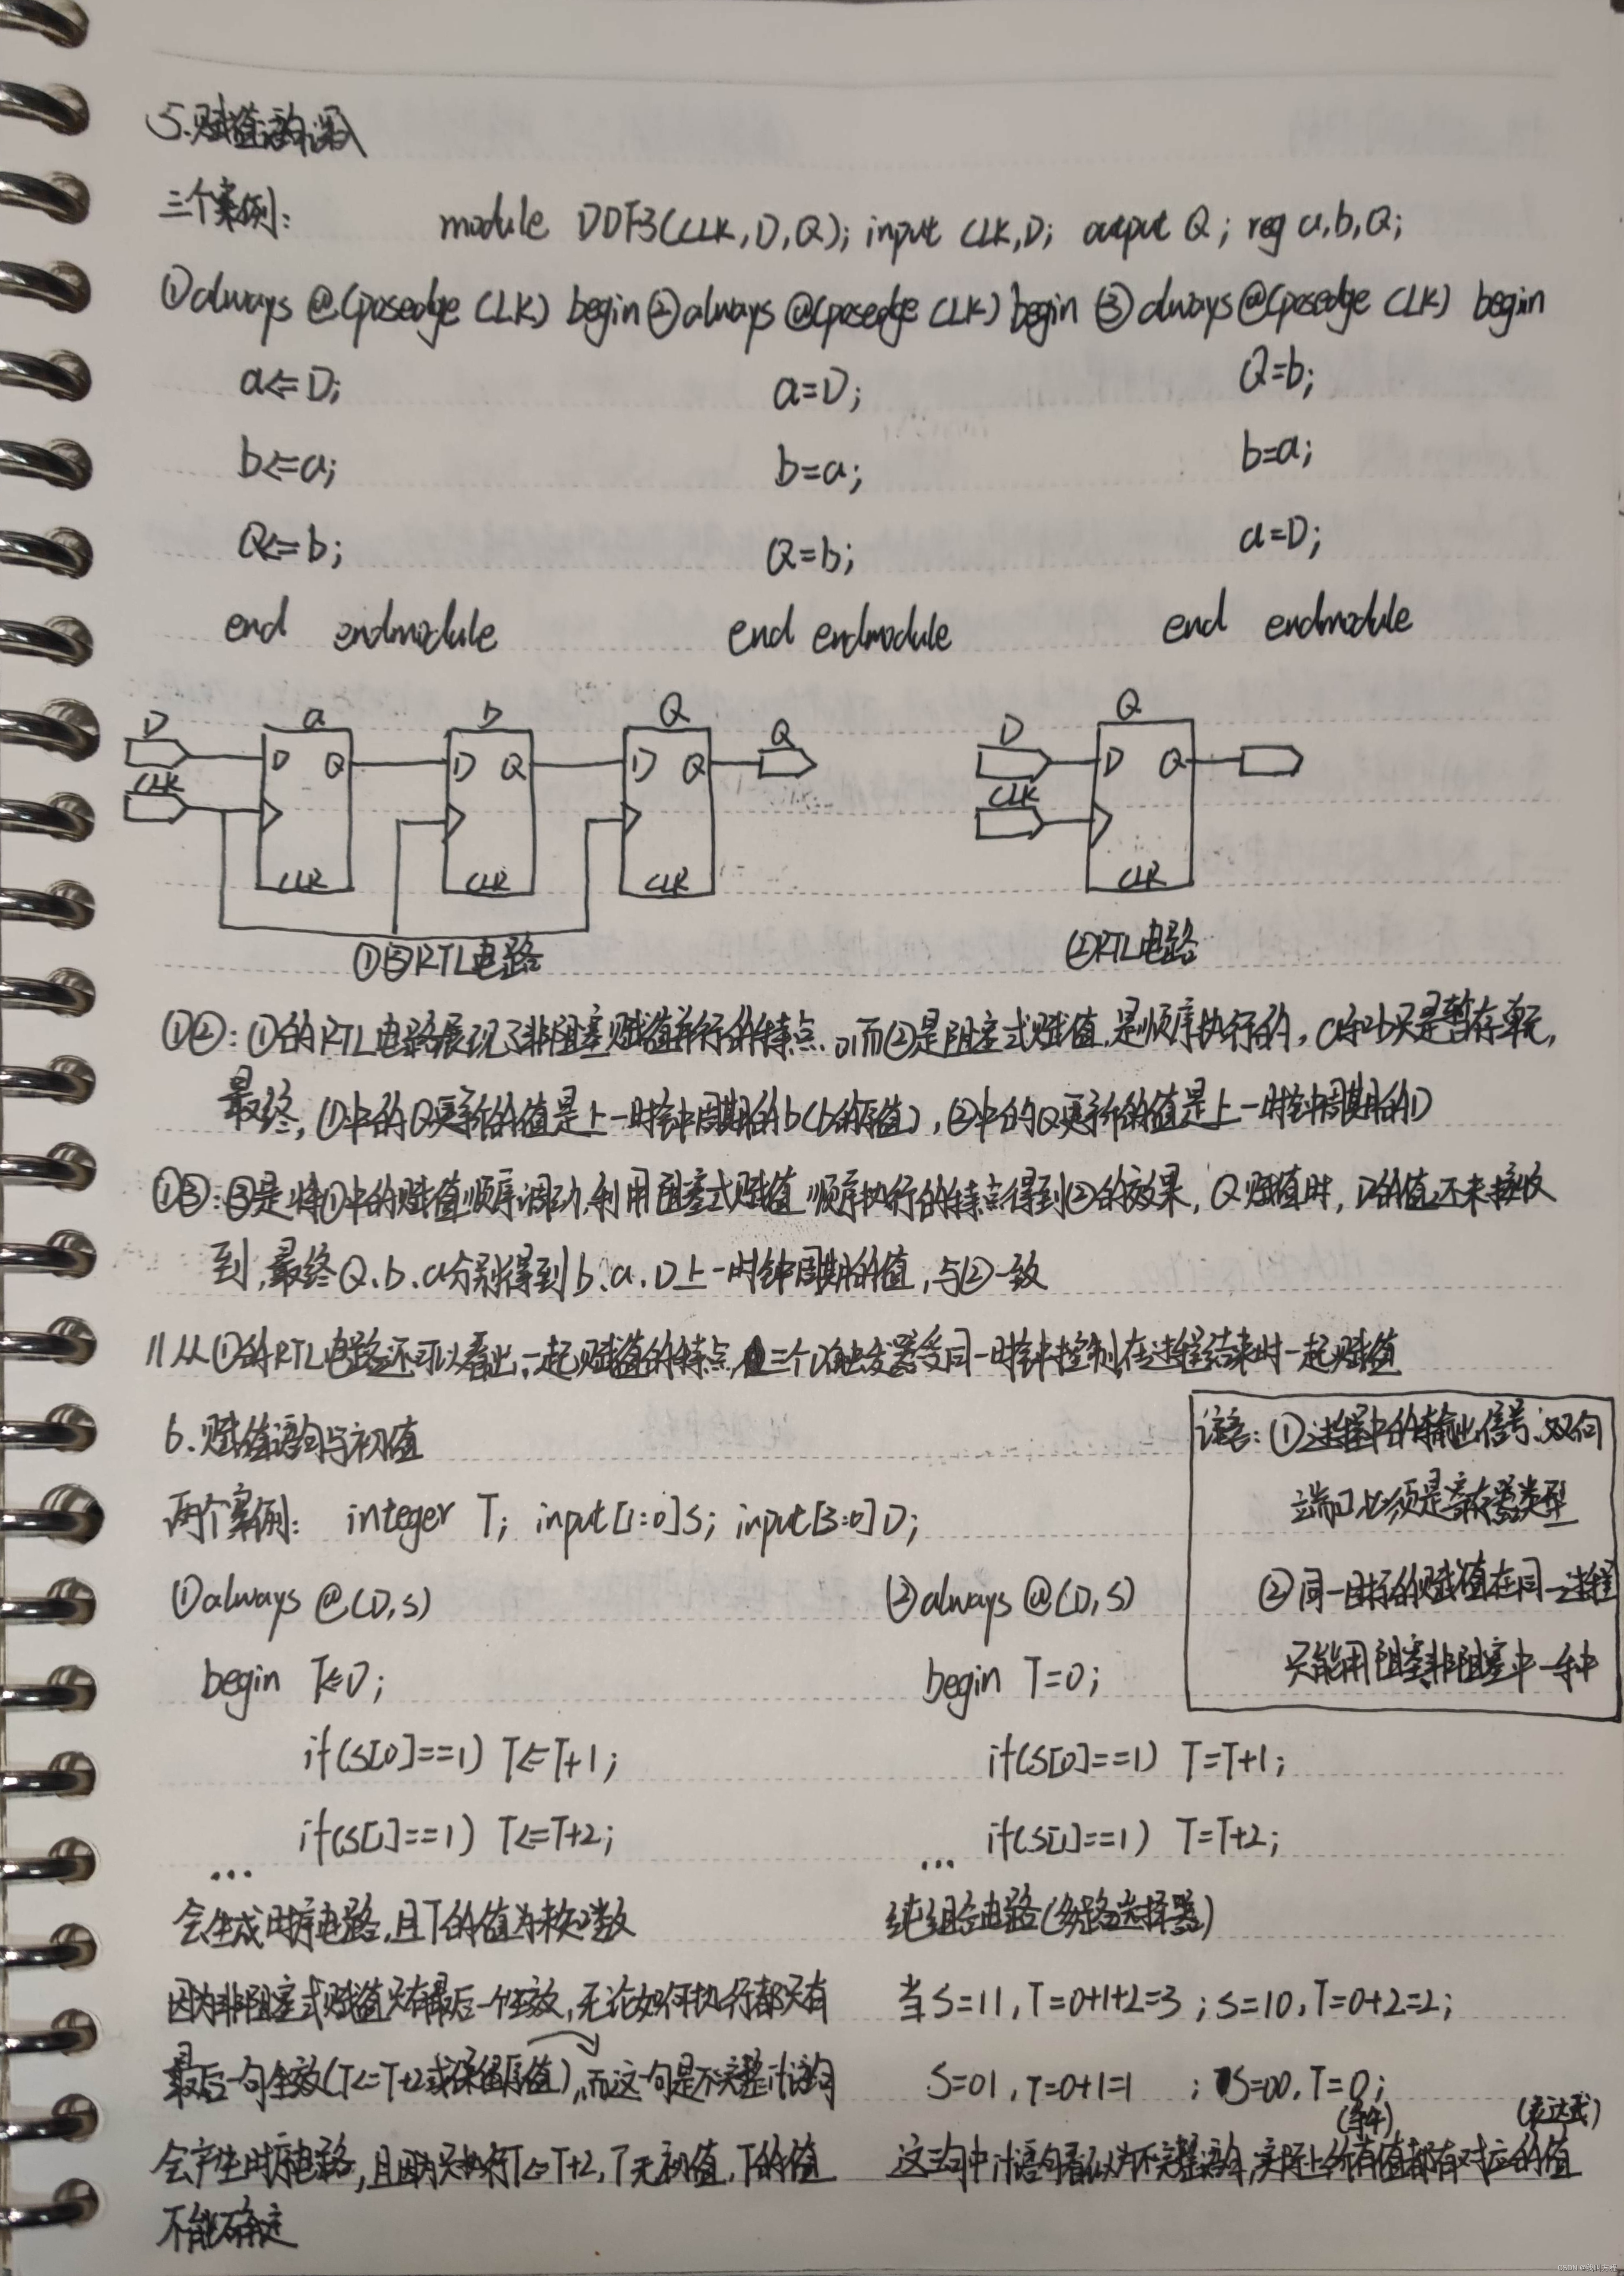 5.赋值语句深入
三个案例: module DDF3(CLK,D,Q); input CLK,D; output Q; reg a,b,Q;
①always @(posedge CLK) begin ②always @(posedge CLK) begin ③always @(posedge CLK) begin
a<=D; a=D; Q=b;
b<=a; b=a; b=a;
Q<=b; Q=b; a=D;
end endmodule end endmodule end endmodule
D a b Q Q D Q
D Q D Q D Q D Q
CLK CLK
CLK CLK CLK CLK
①③RTL电路 ②RTL电路
①②:①的RTL电路展现了非阻塞赋值并行的特点,而②是阻塞式赋值,是顺序执行的,a和b只是暂存单元,
最终,①中的Q更新的值是上一时钟周期的b(b的原值),②中的Q更新的值是上一时钟周期的D
①③:③是将①中的赋值顺序调动,利用阻塞式赋值顺序执行的特点得到②的效果,Q赋值时,D的值还未接收
到,最终Q、b、a分别得到b、a、D上一时钟周期的值,与②一致
//从①的RTL电路还可以看出,一起赋值的特点,三个D触发器受同一时钟控制,在过程结束时一起赋值
6.赋值语句与初值
注意:①过程中的输出信号、双向
端口必须是寄存器类型
②同一目标的赋值在同一过程
只能用阻塞、非阻塞中一种
两个案例: integer T; input[1:0]S; input[3:0]D;
①always @(D,S) ②always @(D,S)
begin T<=0; begin T=0;
if(S[0]==1) T<=T+1; if(S[0]==1) T=T+1;
if(S[1]==1) T<=T+2; if(S[1]==1) T=T+2;
... ...
会生成时序电路,且T的值为未知数 纯组合电路(多路选择器)
因为非阻塞式赋值只有最后一个生效,无论如何执行都只有 当S=11,T=0+1+2=3;S=10,T=0+2=2;
最后一句生效(T<=T+2或保留原值),而这一句是不完整if语句 S=01,T=0+1=1 ;S=00,T=0;
(条件) (表达式)
会产生时序电路,且因为只执行T<=T+2,T无初值,T的值 这三句中if语句看似为不完整语句,实际上所有值都有对应的值
不能确定